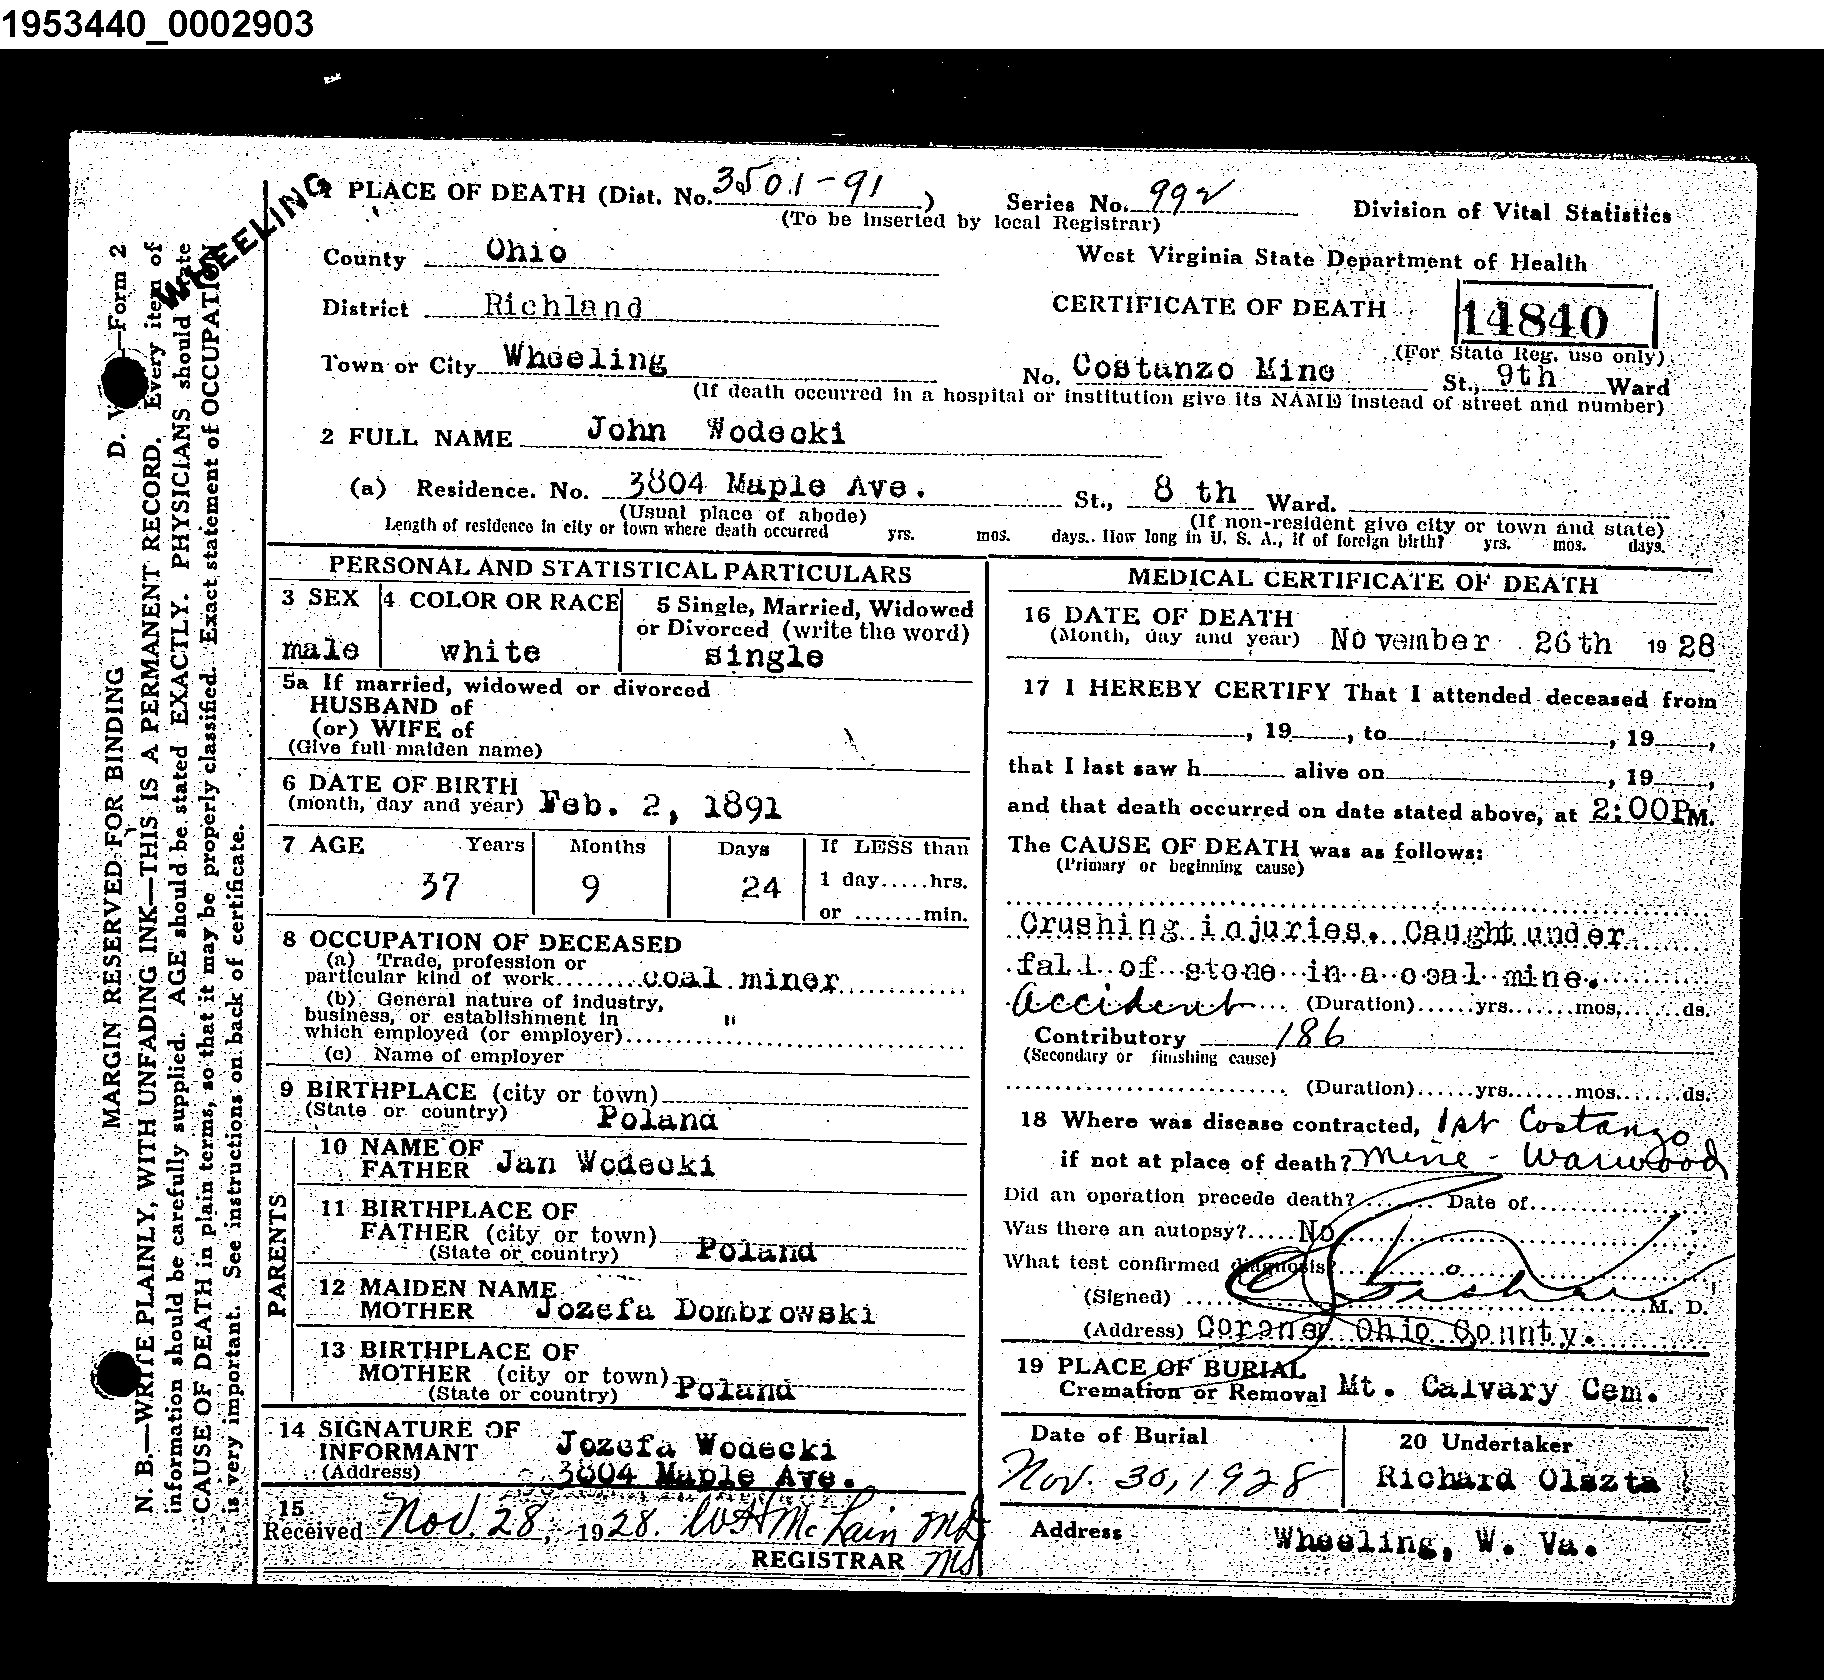 1953440_0002903
WHEELING
1 PLACE OF DEATH (Dist. No. 3501-91) Series No. 992 Division of Vital Statistics
(To be inserted by local Registrar)
County Ohio West Virginia State Department of Health
District Richland CERTIFICATE OF DEATH 14840
(For State Reg. use only)
Town or City Wheeling No. Costanzo Mine St., 9th Ward
(If death occurred in a hospital or institution give its NAME instead of street and number)
2 FULL NAME John Wodecki
(a) Residence. No. 3804 Maple Ave. St., 8 th Ward.
(Usual place of abode) (If non-resident give city or town and state)
Length of residence in city or town where death occurred yrs. mos. days. How long in U. S. A., if of foreign birth? yrs. mos. days.
PERSONAL AND STATISTICAL PARTICULARS
3 SEX
male
4 COLOR OR RACE
white
5 Single, Married, Widowed
or Divorced (write the word)
single
5a If married, widowed or divorced
HUSBAND of
(or) WIFE of
(Give full maiden name)
6 DATE OF BIRTH
(month, day and year) Feb. 2, 1891
7 AGE Years Months Days If LESS than
37 9 24 1 day.....hrs.
or .......min.
8 OCCUPATION OF DECEASED
(a) Trade, profession or
particular kind of work coal miner
(b) General nature of industry,
business, or establishment in "
which employed (or employer)
(c) Name of employer
9 BIRTHPLACE (city or town)
(State or country) Poland
PARENTS
10 NAME OF
FATHER Jan Wodecki
11 BIRTHPLACE OF
FATHER (city or town)
(State or country) Poland
12 MAIDEN NAME
MOTHER Jozefa Dombrowski
13 BIRTHPLACE OF
MOTHER (city or town) Poland
(State or country)
14 SIGNATURE OF
INFORMANT Jozefa Wodecki
(Address) 3804 Maple Ave.
15
Received Nov. 28, 1928. WH McLain MD
REGISTRAR MS
MEDICAL CERTIFICATE OF DEATH
16 DATE OF DEATH
(Month, day and year) November 26th 1928
17 I HEREBY CERTIFY That I attended deceased from
, 19 , to , 19 ,
that I last saw h alive on , 19 ,
and that death occurred on date stated above, at 2:00PM.
The CAUSE OF DEATH was as follows:
(Primary or beginning cause)
Crushing injuries. Caught under
fall of stone in a coal mine.
Accident (Duration)......yrs.......mos.......ds.
Contributory 186
(Secondary or finishing cause)
(Duration)......yrs.......mos.......ds.
18 Where was disease contracted, 1st Costanzo
if not at place of death? Mine - Warwood
Did an operation precede death? Date of
Was there an autopsy? No
What test confirmed diagnosis?
(Signed) M. D.
(Address) Coroner Ohio County.
19 PLACE OF BURIAL
Cremation or Removal Mt. Calvary Cem.
Date of Burial
Nov. 30, 1928
20 Undertaker
Richard Olszta
Address Wheeling, W. Va.
MARGIN RESERVED FOR BINDING
D. —Form 2
N. B.—WRITE PLAINLY, WITH UNFADING INK—THIS IS A PERMANENT RECORD. Every item of
information should be carefully supplied. AGE should be stated EXACTLY. PHYSICIANS should state
CAUSE OF DEATH in plain terms, so that it may be properly classified. Exact statement of OCCUPATION
is very important. See instructions on back of certificate.